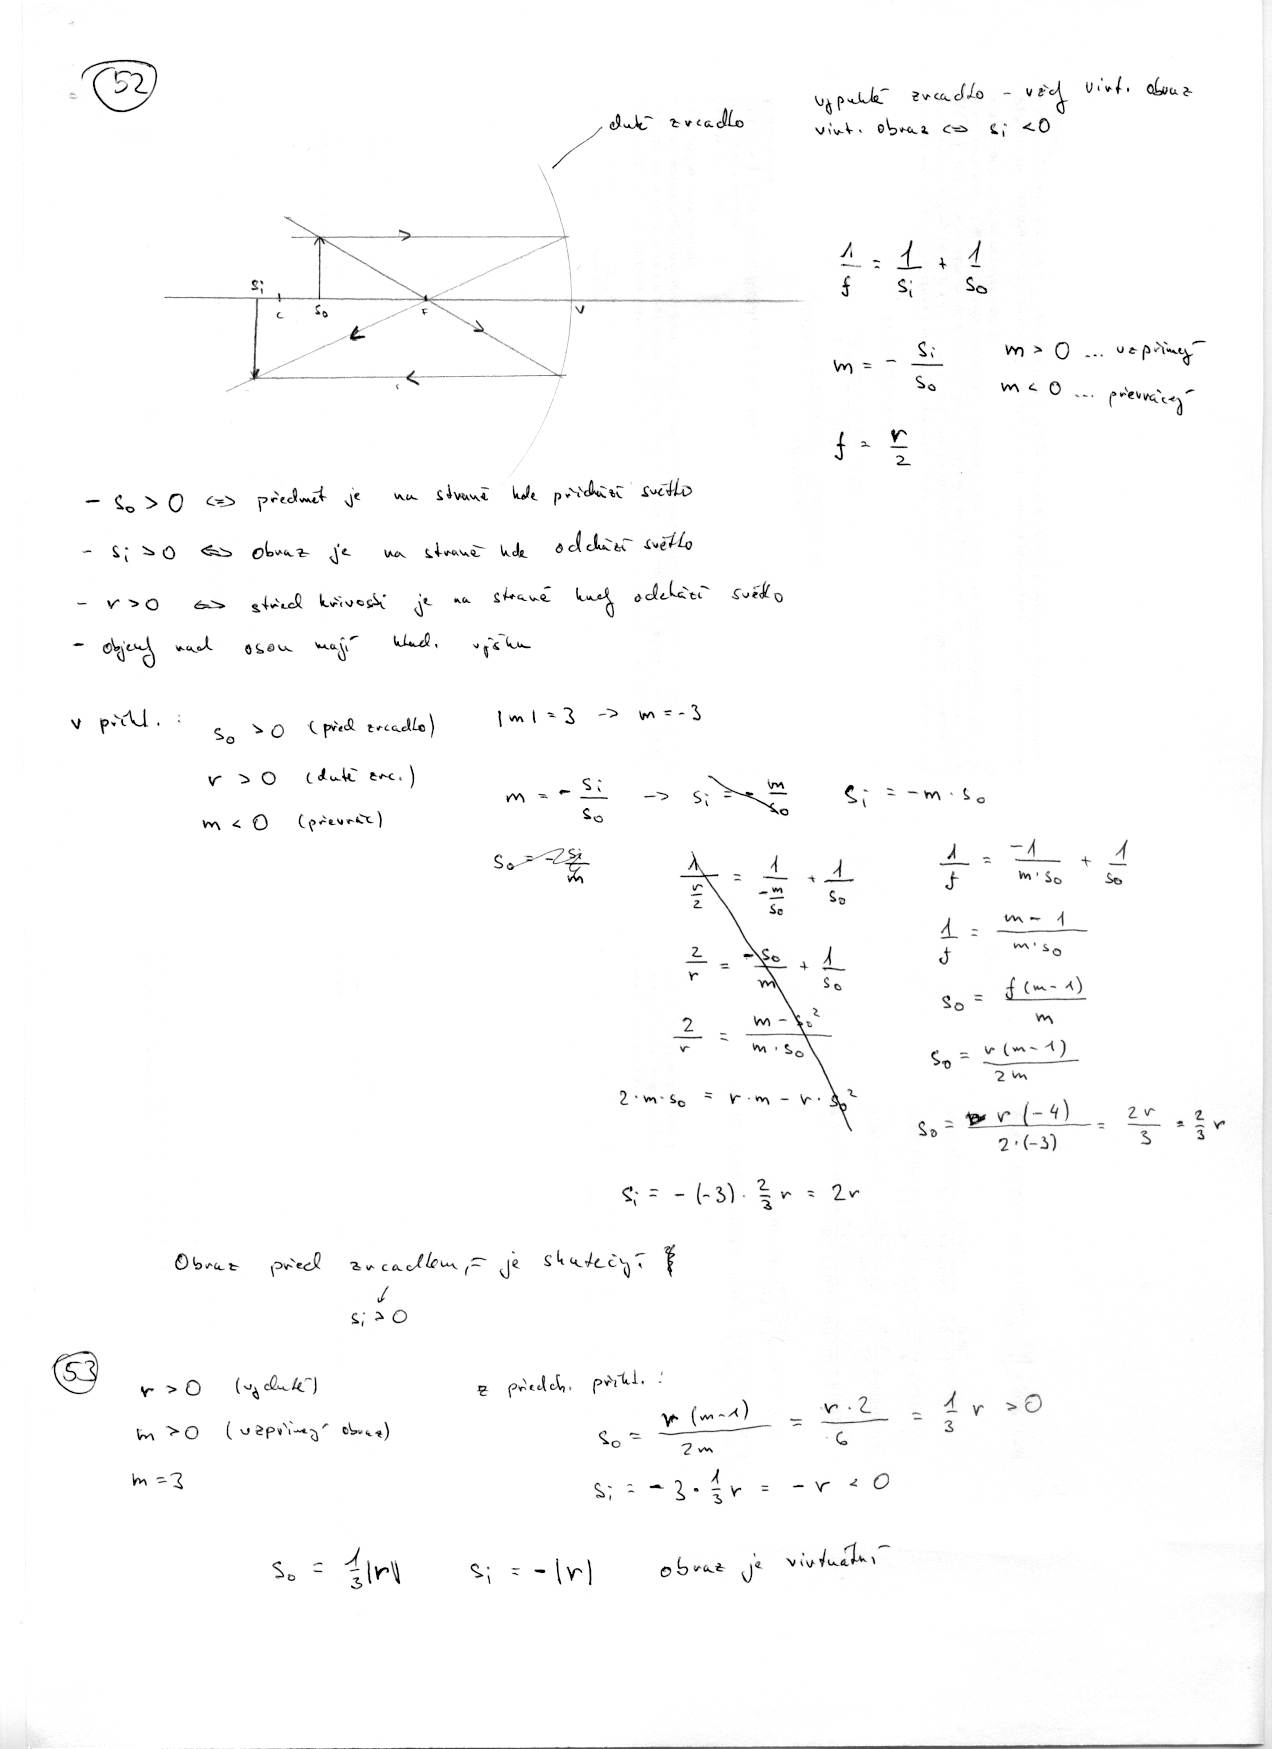 52
duté zrcadlo
vypuklé zrcadlo - vždy virt. obraz
virt. obraz <=> si < 0
si
c
so
F
V
1/f = 1/si + 1/so
m = - si/so
m > 0 ... vzpřímený
m < 0 ... převrácený
f = r/2
- so > 0 <=> předmět je na straně kde přichází světlo
- si > 0 <=> obraz je na straně kde odchází světlo
- r > 0 <=> střed křivosti je na straně kudy odchází světlo
- objekty nad osou mají klad. výšku
v příkl. :
so > 0 (před zrcadlo)
|m| = 3 -> m = -3
r > 0 (duté zrc.)
m < 0 (převrác)
m = - si/so -> si = - m/so
si = -m · so
1/(r/2) = 1/(-m/so) + 1/so
2/r = -so/m + 1/so
2/r = (m - so²)/(m · so)
2·m·so = r·m - r·so²
1/f = -1/(m·so) + 1/so
1/f = (m - 1)/(m·so)
so = f(m-1)/m
so = r(m-1)/2m
so = r(-4)/(2·(-3)) = 2r/3 = 2/3 r
si = -(-3) · 2/3 r = 2r
Obraz před zrcadlem, = je skutečý.
si > 0
53
r > 0 (vyduté)
m > 0 (vzpřímený obraz)
m = 3
z předch. příkl. :
so = r(m-1)/2m = r·2/6 = 1/3 r > 0
si = -3 · 1/3 r = -r < 0
so = 1/3 |r|
si = -|r|
obraz je virtuální